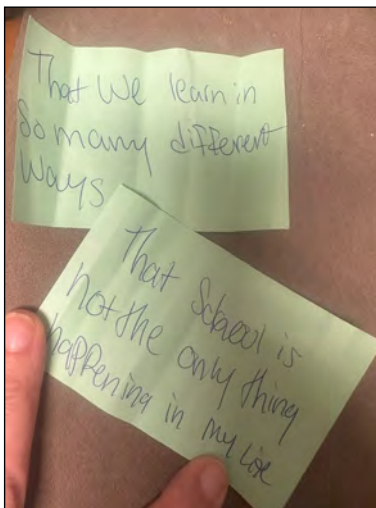 That We learn in
So many different
Ways
That School is
not the only thing
happening in my Life